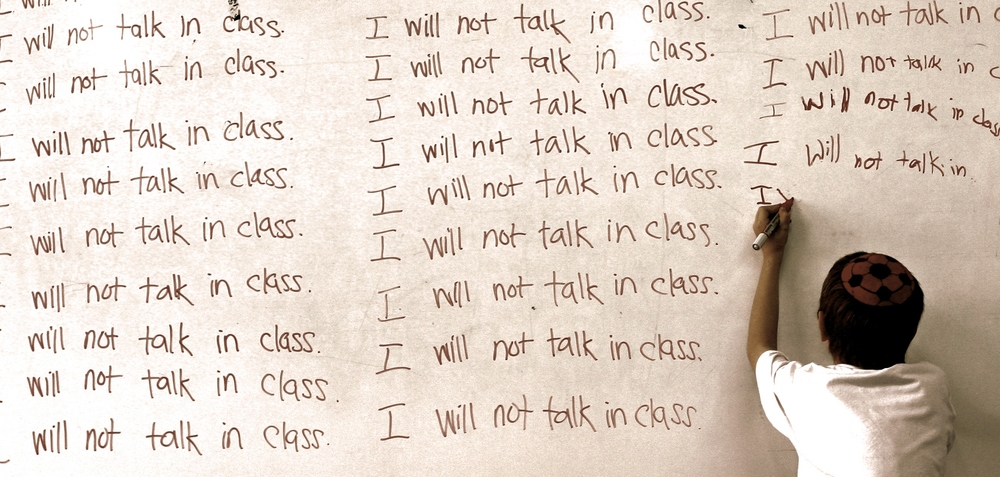 I will not talk in class.
will not talk in class.
I will not talk in class.
I will not talk in class.
will not talk in class.
will not talk in class.
will not talk in class.
will not talk in class.
will not talk in class.
I will not talk in class.
I will not talk in class.
I will not talk in class.
I will not talk in class.
I will not talk in class.
I will not talk in class.
I will not talk in class.
I will not talk in class.
I will not talk in class.
I will not talk in
I will not talk in
I will not talk in class
I Will not talk in.
I